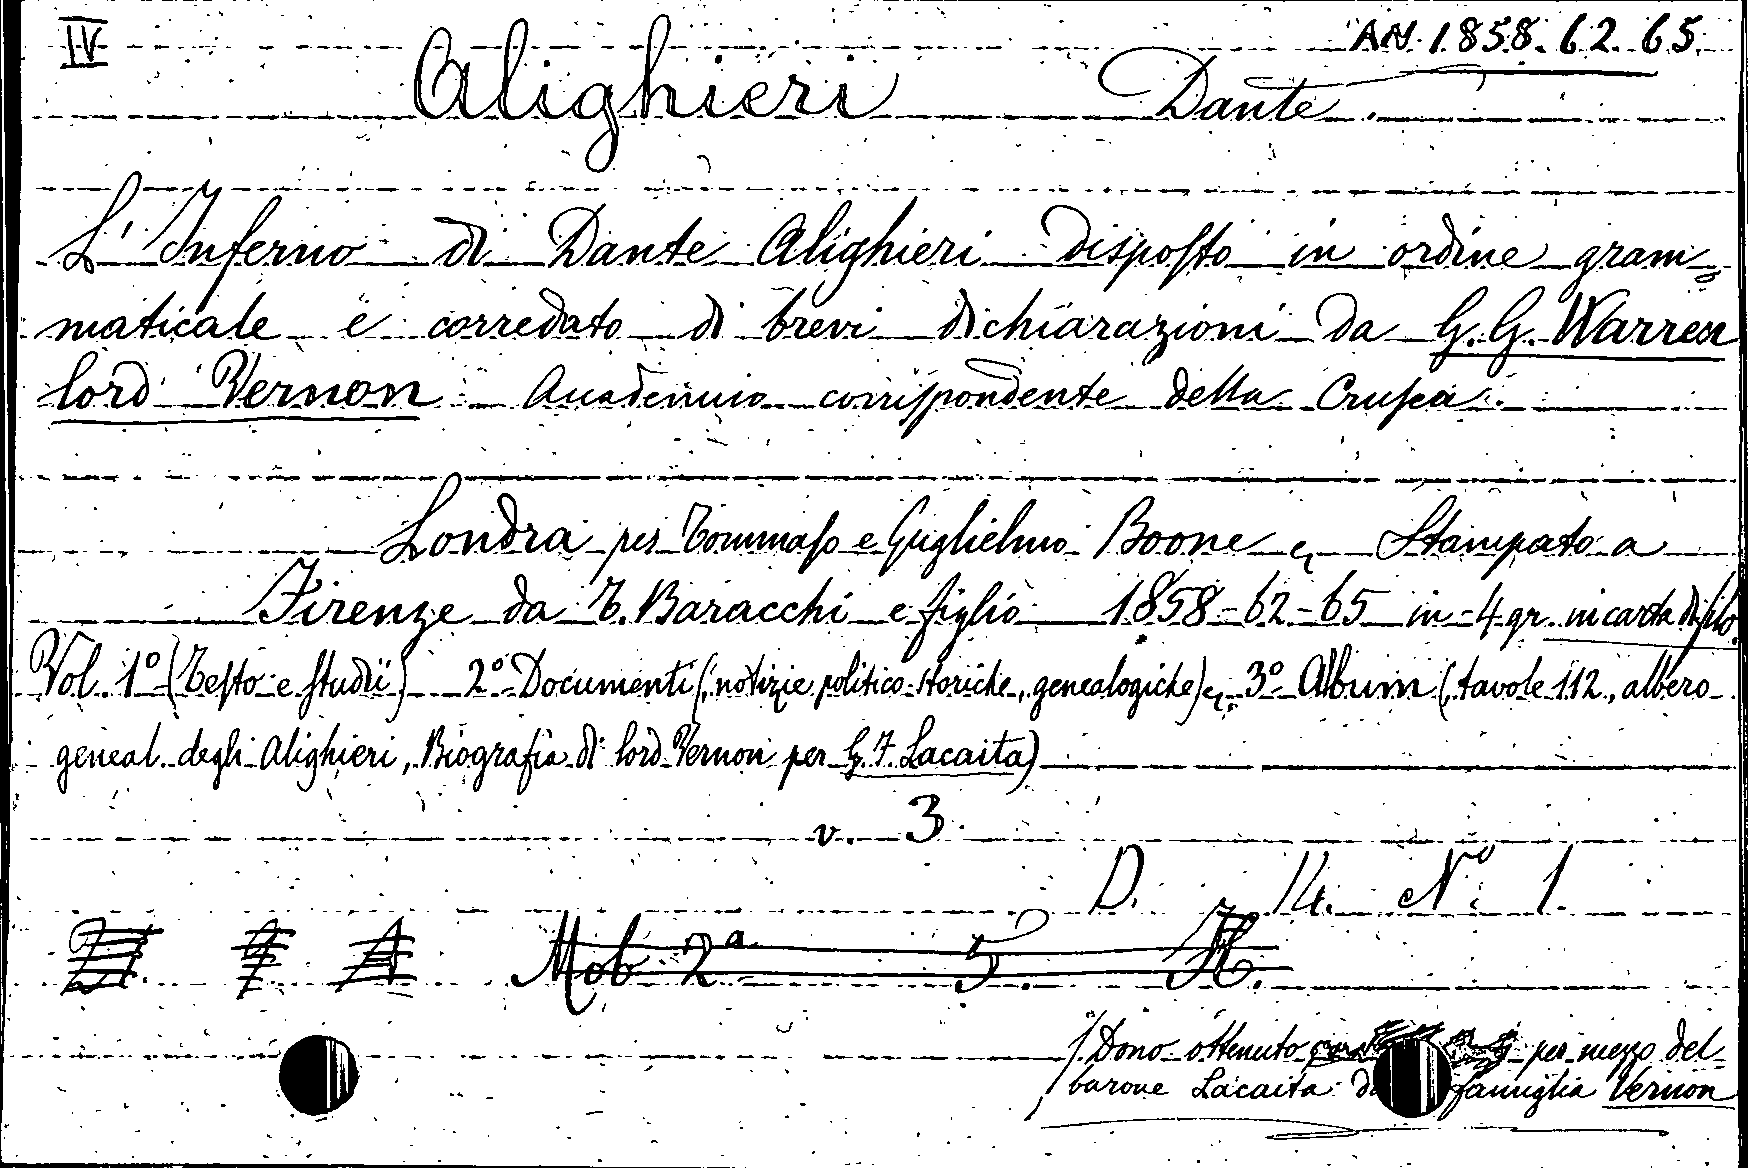 IV AN. 1858. 62. 65.
Alighieri Dante.
L'Inferno di Dante Alighieri disposto in ordine gram-
maticale e corredato di brevi dichiarazioni da G. G. Warren
lord Vernon Accademico corrispondente della Crusca.
Londra per Tommaso e Guglielmo Boone e, Stampato a
Firenze da T. Baracchi e figlio 1858-62-65 in-4 gr. in carta di filo.
Vol. 1º (Testo e studii) 2º Documenti (notizie politico-storiche, genealogiche) e, 3º Album (tavole 112, albero
geneal. degli Alighieri, Biografia di lord Vernon per G. F. Lacaita)
v. 3
D. 14. Nº 1.
Mob 2ª 5.
(Dono ottenuto per mezzo del
barone Lacaita famiglia Vernon